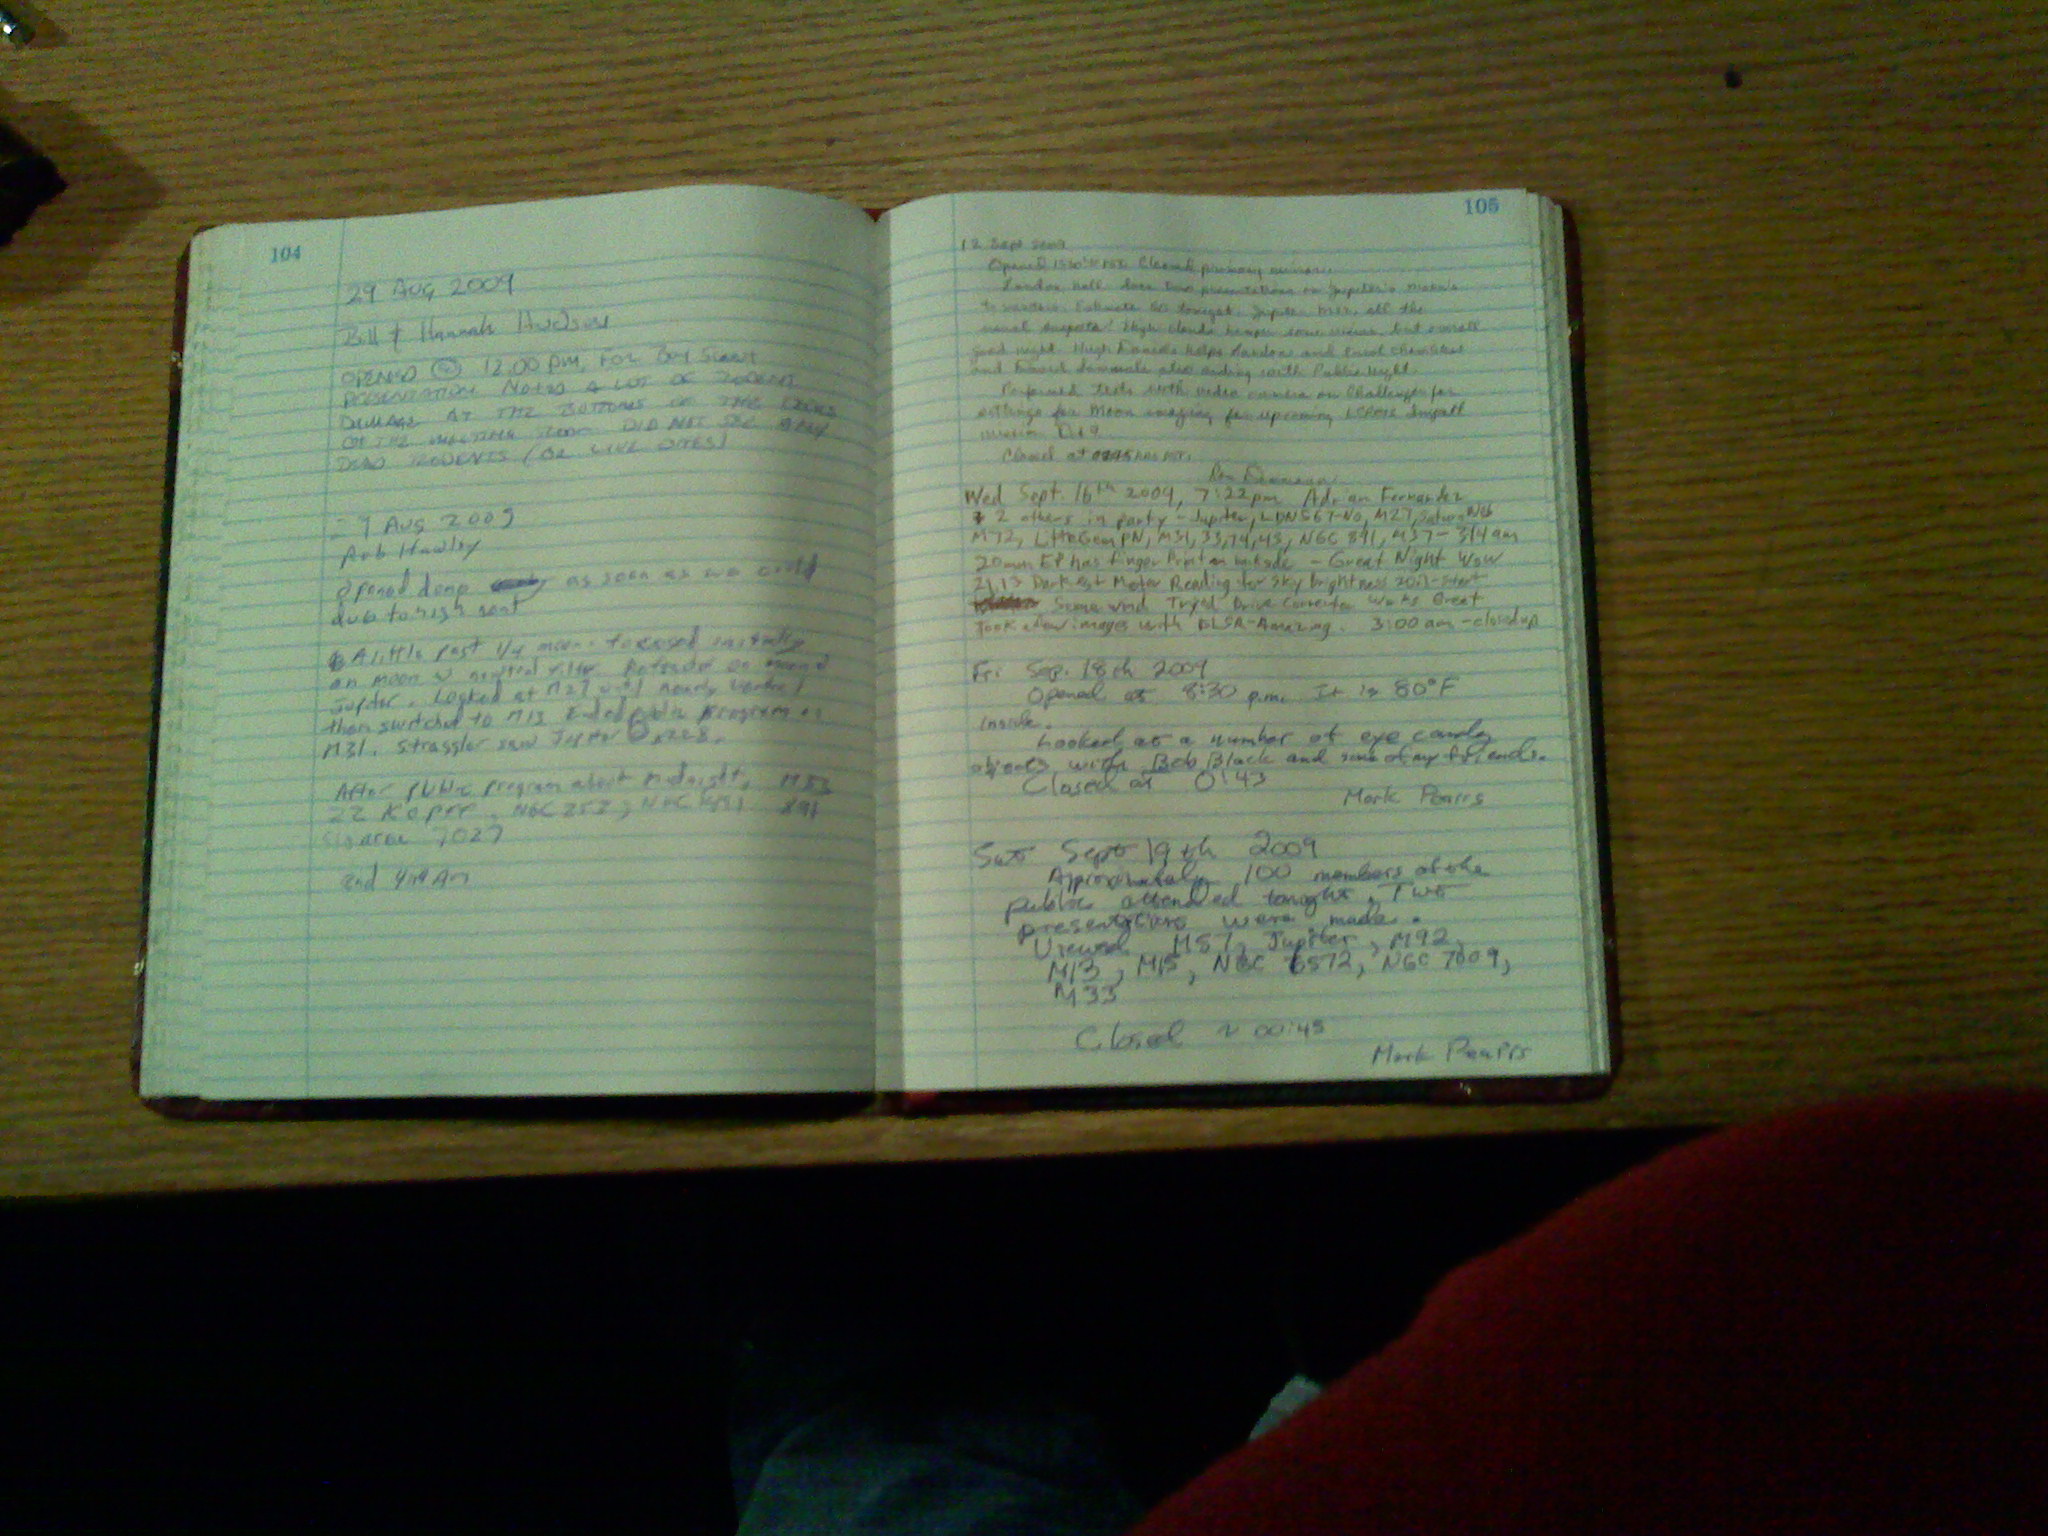 104
29 Aug 2009
Bill & Hannah Hudson
OPENED @ 12:00 PM, FOR BOY SCOUT
PRESENTATION NOTED A LOT OF RODENT
DAMAGE AT THE BOTTOMS OF THE
OF THE MEETING ROOM DID NOT SEE ANY
DEAD RODENTS (OR LIVE ONES)
29 Aug 2009
Rob Hawley
Opened dome as soon as we could
due to high
A little past 1/4 moon. focused initially
on moon w neutral filter. Rotated on around
Jupiter. Looked at M27 until nearly
then switched to M13 Ended public program on
M31. Straggler saw Jupiter @ x228.
After public program about midnight, M53
22 Kopff, NGC 253, NGC 891
7027
end 4:19 Am
105
12 Sept 2009
Opened Cleaned primary mirror.
Landon Hall does two presentations on Jupiter's moons
to visitors. Estimate 60 tonight. Jupiter, M13, all the
usual suspects! High clouds hamper some views, but overall
good night. Hugh helps Landon and
and also aiding with Public Night.
Performed tests with video camera on Challenger for
settings for Moon imaging for upcoming LCROSS Impact
mission Oct 9.
Closed at 0245 hrs PDT.
Wed Sept. 16th 2009, 7:22pm Adrian Fernandez
& 2 others in party - Jupiter, LDN567-No, M27, Saturn Neb
M72, Little Gem PN, M31, 33, 74, 45, NGC 891, M37 - 3:14am
20mm EP has finger Print on inside - Great Night Wow
21.13 Darkest Meter Reading for Sky brightness 20.1-start
Some wind Tryed Drive Corrector Works Great
Took a few images with DLSR-Amazing. 3:00 am - closed up
Fri Sep. 18th 2009
Opened at 8:30 p.m. It is 80°F
inside.
Looked at a number of eye candy
objects with Bob Black and some of my friends.
Closed at 0:43
Mark Pearrs
Sat Sept 19th 2009
Approximately 100 members of the
public attended tonight. Two
presentations were made.
Viewed M57, Jupiter, M92,
M13, M15, NGC 6572, NGC 7009,
M33
Closed ~ 00:45
Mark Pearrs